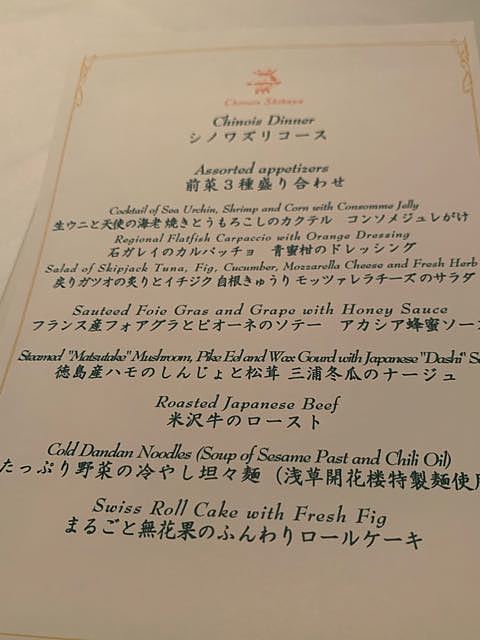 Chinois Shibuya
Chinois Dinner
シノワズリコース
Assorted appetizers
前菜３種盛り合わせ
Cocktail of Sea Urchin, Shrimp and Corn with Consomme Jelly
生ウニと天使の海老 焼きとうもろこしのカクテル　コンソメジュレがけ
Regional Flatfish Carpaccio with Orange Dressing
石ガレイのカルパッチョ　青蜜柑のドレッシング
Salad of Skipjack Tuna, Fig, Cucumber, Mozzarella Cheese and Fresh Herb
戻りガツオの炙りとイチジク 白根きゅうり モッツァレラチーズのサラダ
Sauteed Foie Gras and Grape with Honey Sauce
フランス産フォアグラとピオーネのソテー　アカシア蜂蜜ソース
Steamed "Matsutake" Mushroom, Pike Eel and Wax Gourd with Japanese "Dashi" S
徳島産ハモのしんじょと松茸 三浦冬瓜のナージュ
Roasted Japanese Beef
米沢牛のロースト
Cold Dandan Noodles (Soup of Sesame Past and Chili Oil)
たっぷり野菜の冷やし坦々麺（浅草開花楼特製麺使用
Swiss Roll Cake with Fresh Fig
まるごと無花果のふんわりロールケーキ